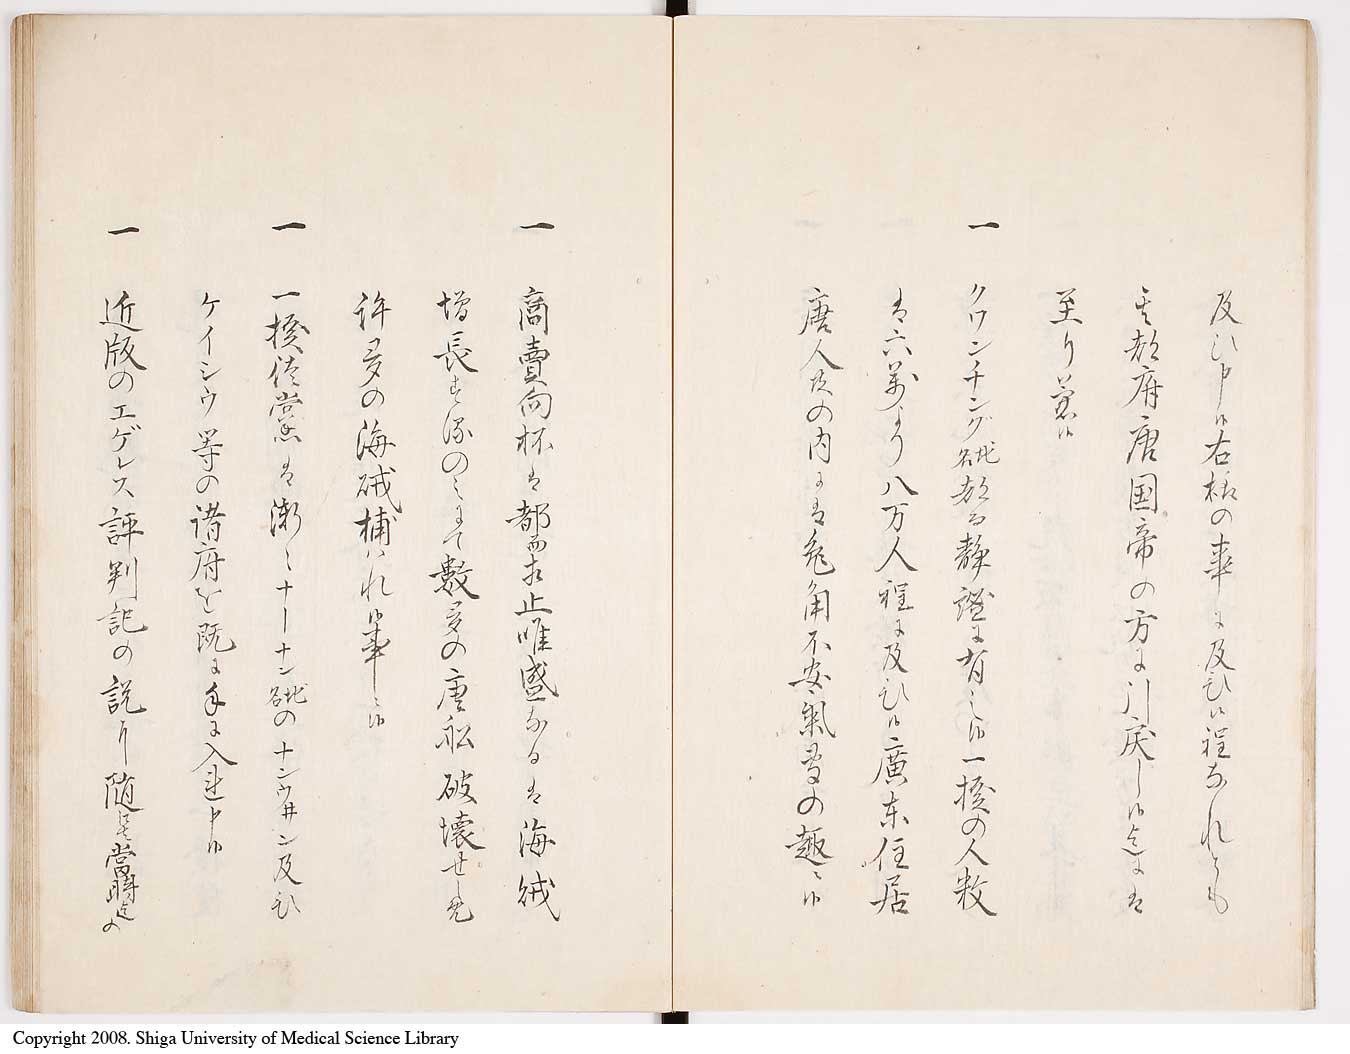 及ひ申候右様の事に及ひ候程なれとも
其都府唐国帝の方に引戻し候迄には
至り兼候
一 クワンチング地名都而静謐に有之候一揆の人数
は六萬より八万人程に及ひ候廣東住居
唐人共の内には兎角不安氣色の趣ニ候
一 商賣向杯は都而相止唯盛なるは海絨
増長する故のミにて數多の唐船破壊せしめ
許多の海䘏捕はれ候事ニ候
一 一揆徒黨は漸々ナーナン地名のナンウ井ン及ひ
ケイシウ等の諸府を既に手に入連申候
一 近版のエゲレス評判記の説り随は當時迄の
Copyright 2008. Shiga University of Medical Science Library